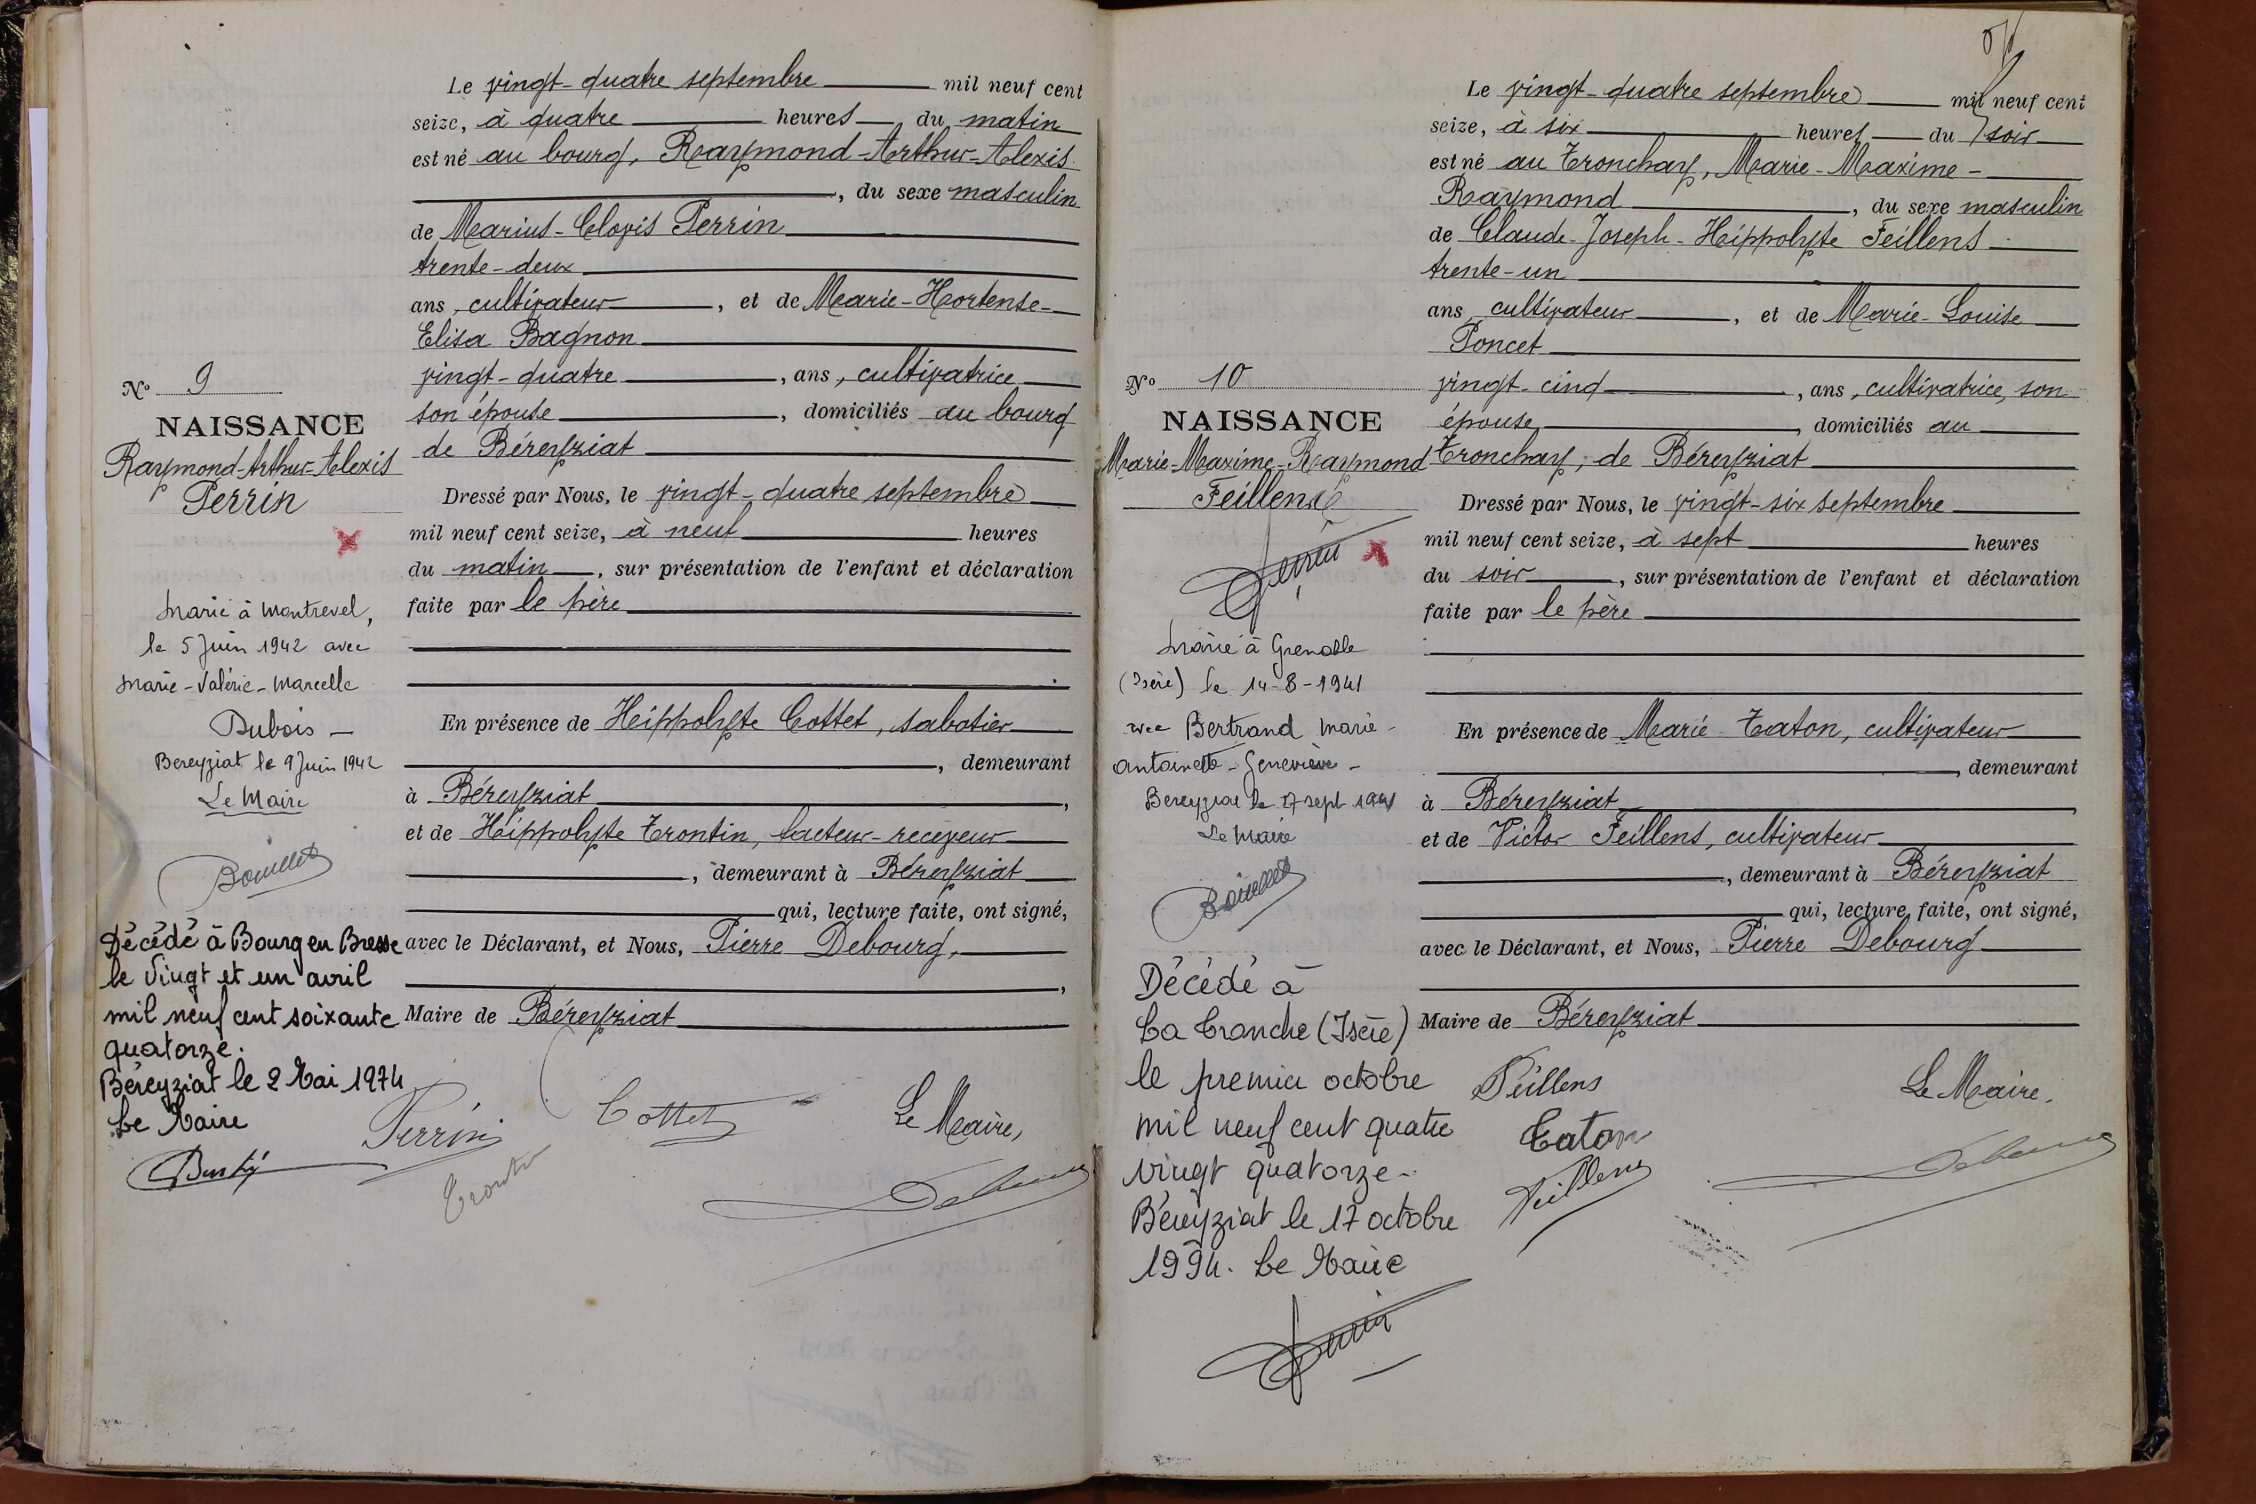 Le vingt-quatre septembre mil neuf cent
seize, à quatre heures du matin
est né au bourg, Raymond-Arthur-Alexis
, du sexe masculin
de Marius-Clovis Perrin
trente-deux
ans, cultivateur, et de Marie-Hortense-
Elisa Bagnon
vingt-quatre, ans, cultivatrice
son épouse, domiciliés au bourg
de Béreyziat
Dressé par Nous, le vingt-quatre septembre
mil neuf cent seize, à neuf heures
du matin, sur présentation de l'enfant et déclaration
faite par le père
En présence de Hippolyte Cottet, sabotier
, demeurant
à Béreyziat,
et de Hippolyte Trontin, facteur-receveur
, demeurant à Béreyziat
qui, lecture faite, ont signé,
avec le Déclarant, et Nous, Pierre Debourg,
,
Maire de Béreyziat
Perrin
Cottet
Le Maire,
Trontin
Debourg
No 9
NAISSANCE
Raymond-Arthur-Alexis
Perrin
Marié à Montrevel,
le 5 Juin 1942 avec
Marie-Valérie-Marcelle
Dubois -
Bereyziat le 9 Juin 1942
Le Maire
Bouillet
Décédé à Bourg en Bresse
le vingt et un avril
mil neuf cent soixante
quatorze.
Béreyziat le 2 Mai 1974
Le Maire
Le vingt-quatre septembre mil neuf cent
seize, à six heures du soir
est né au Tronchay, Marie-Maxime-
Raymond, du sexe masculin
de Claude-Joseph-Hippolyte Feillens
trente-un
ans, cultivateur, et de Marie-Louise
Poncet
vingt-cinq, ans, cultivatrice, son
épouse, domiciliés au
Tronchay, de Béreyziat
Dressé par Nous, le vingt-six septembre
mil neuf cent seize, à sept heures
du soir, sur présentation de l'enfant et déclaration
faite par le père
En présence de Marie Taton, cultivateur
, demeurant
à Béreyziat,
et de Victor Feillens, cultivateur
, demeurant à Béreyziat
qui, lecture faite, ont signé,
avec le Déclarant, et Nous, Pierre Debourg
Maire de Béreyziat
Feillens
Le Maire.
Taton
Feillens
Debourg
No 10
NAISSANCE
Marie-Maxime-Raymond
Feillens
Marié à Grenoble
(Isère) le 14-8-1941
avec Bertrand Marie-
Antoinette-Geneviève-
Bereyziat le 17 sept 1941
Le Maire
Bouillet
Décédé à
La Tronche (Isère)
le premier octobre
mil neuf cent quatre
vingt quatorze-
Béreyziat le 17 octobre
1994. Le Maire